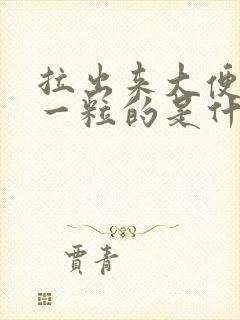 拉出来大便
一粒的是什
贾青